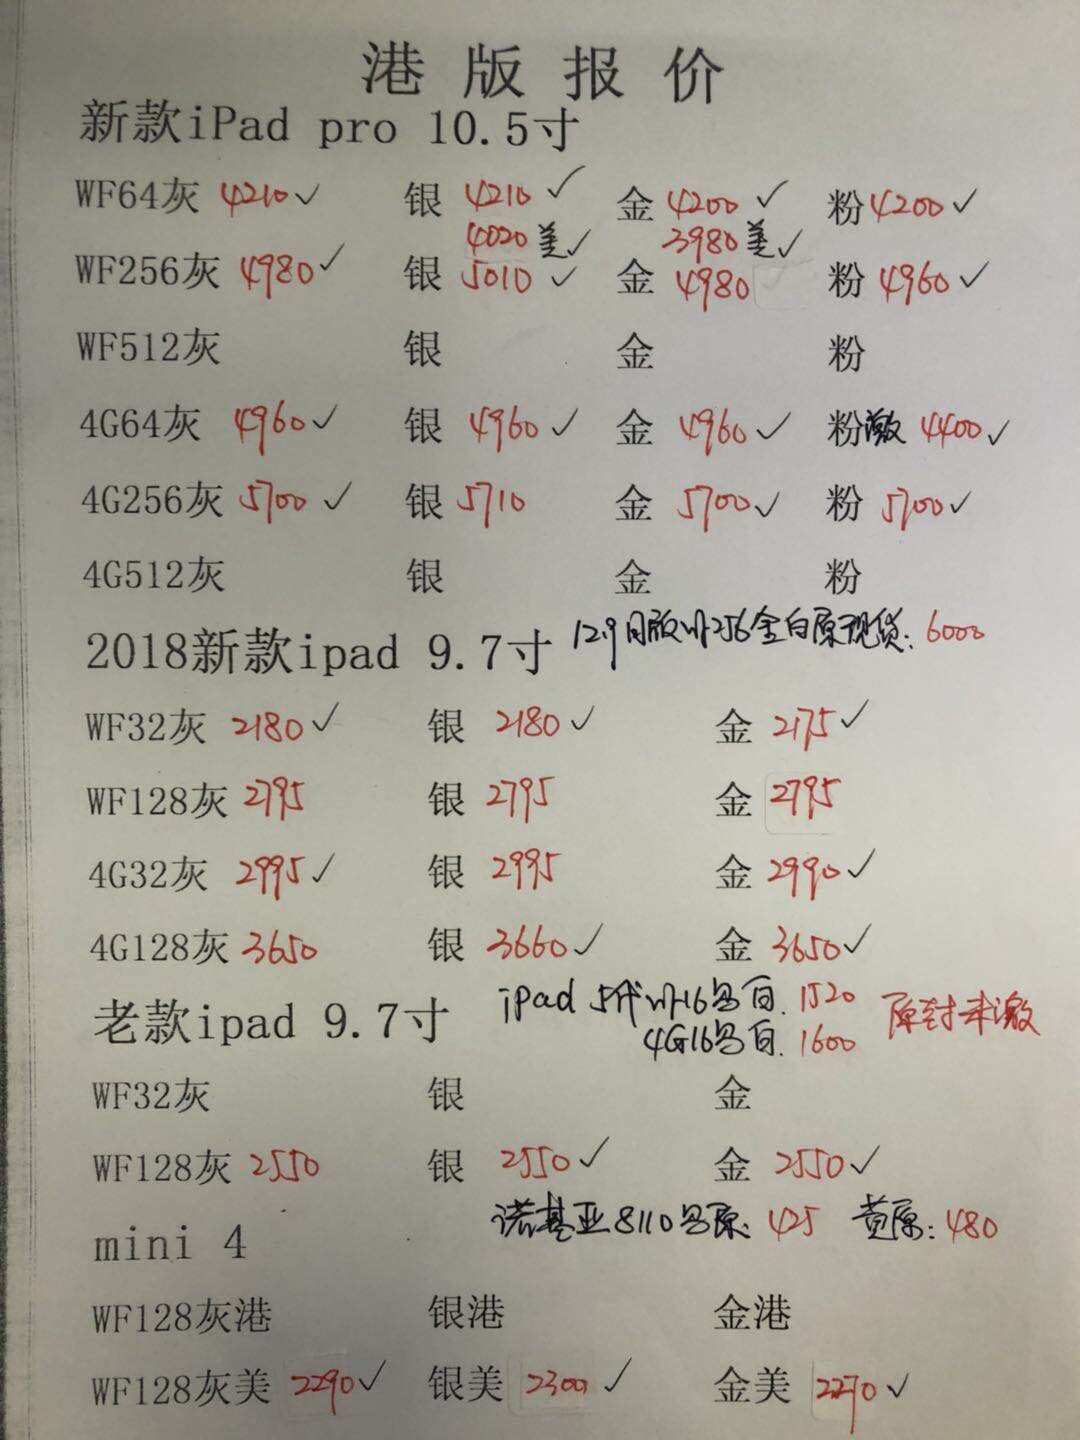 港版报价
新款iPad pro 10.5寸
WF64灰 4210✓ 银 4210✓ 金 4200✓ 粉 4200✓
4020美✓ 3980美✓
WF256灰 4980✓ 银 5010✓ 金 4980 粉 4960✓
WF512灰 银 金 粉
4G64灰 4960✓ 银 4960✓ 金 4960✓ 粉激 4400✓
4G256灰 5700✓ 银 5710 金 5700✓ 粉 5700✓
4G512灰 银 金 粉
2018新款ipad 9.7寸 12.9 版wf256金白原现货: 6000
WF32灰 2180✓ 银 2180✓ 金 2175✓
WF128灰 2795 银 2795 金 2795
4G32灰 2995✓ 银 2995 金 2990✓
4G128灰 3650 银 3660✓ 金 3650✓
老款ipad 9.7寸 ipad 5代wf16 白. 1520 原封未激
4G16 白. 1600
WF32灰 银 金
WF128灰 2550 银 2550✓ 金 2550✓
mini 4 诺基亚8110 原: 425 黄原: 480
WF128灰港 银港 金港
WF128灰美 2290✓ 银美 2300✓ 金美 2270✓